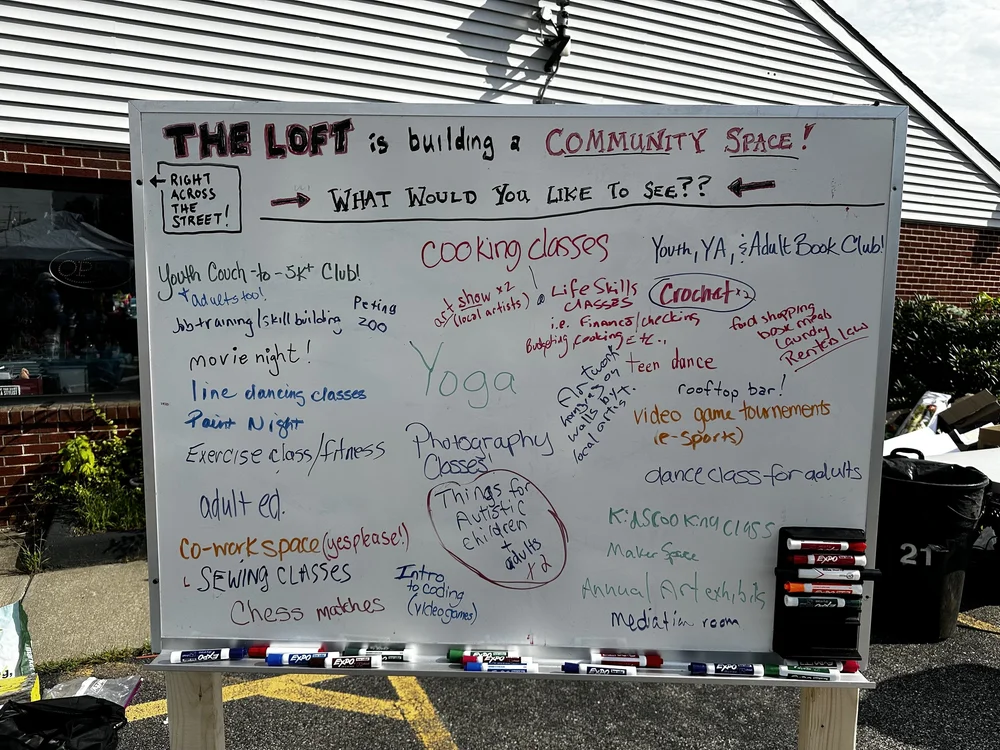 THE LOFT is building a COMMUNITY SPACE!
← RIGHT
ACROSS
THE
STREET!
→ WHAT WOULD YOU LIKE TO SEE?? ←
cooking classes
Youth, YA, & Adult Book Club!
Youth Couch-to-5K+ Club!
*adults too!
Job training/skill building
Peting
zoo
art show x2
(local artists)
Life Skills
CLASSES
i.e. finance/checking
Budgeting cooking etc.,
Crochet x2
food shopping
book meals
Laundry
Renters law
movie night!
Yoga
teen dance
line dancing classes
rooftop bar!
Artwork
hanging on
walls by
local artist.
Paint Night
video game tournements
(e-sports)
Exercise class/fitness
Photography
Classes
dance class for adults
adult ed.
Things for
Autistic
children
+
adults
x2
Kids cooking class
co-work space (yes please!)
Maker Space
SEWING CLASSES
Intro
to coding
(video games)
Annual Art exhibits
Chess matches
Mediation room
EXPO
EXPO
EXPO
EXPO
EXPO
21